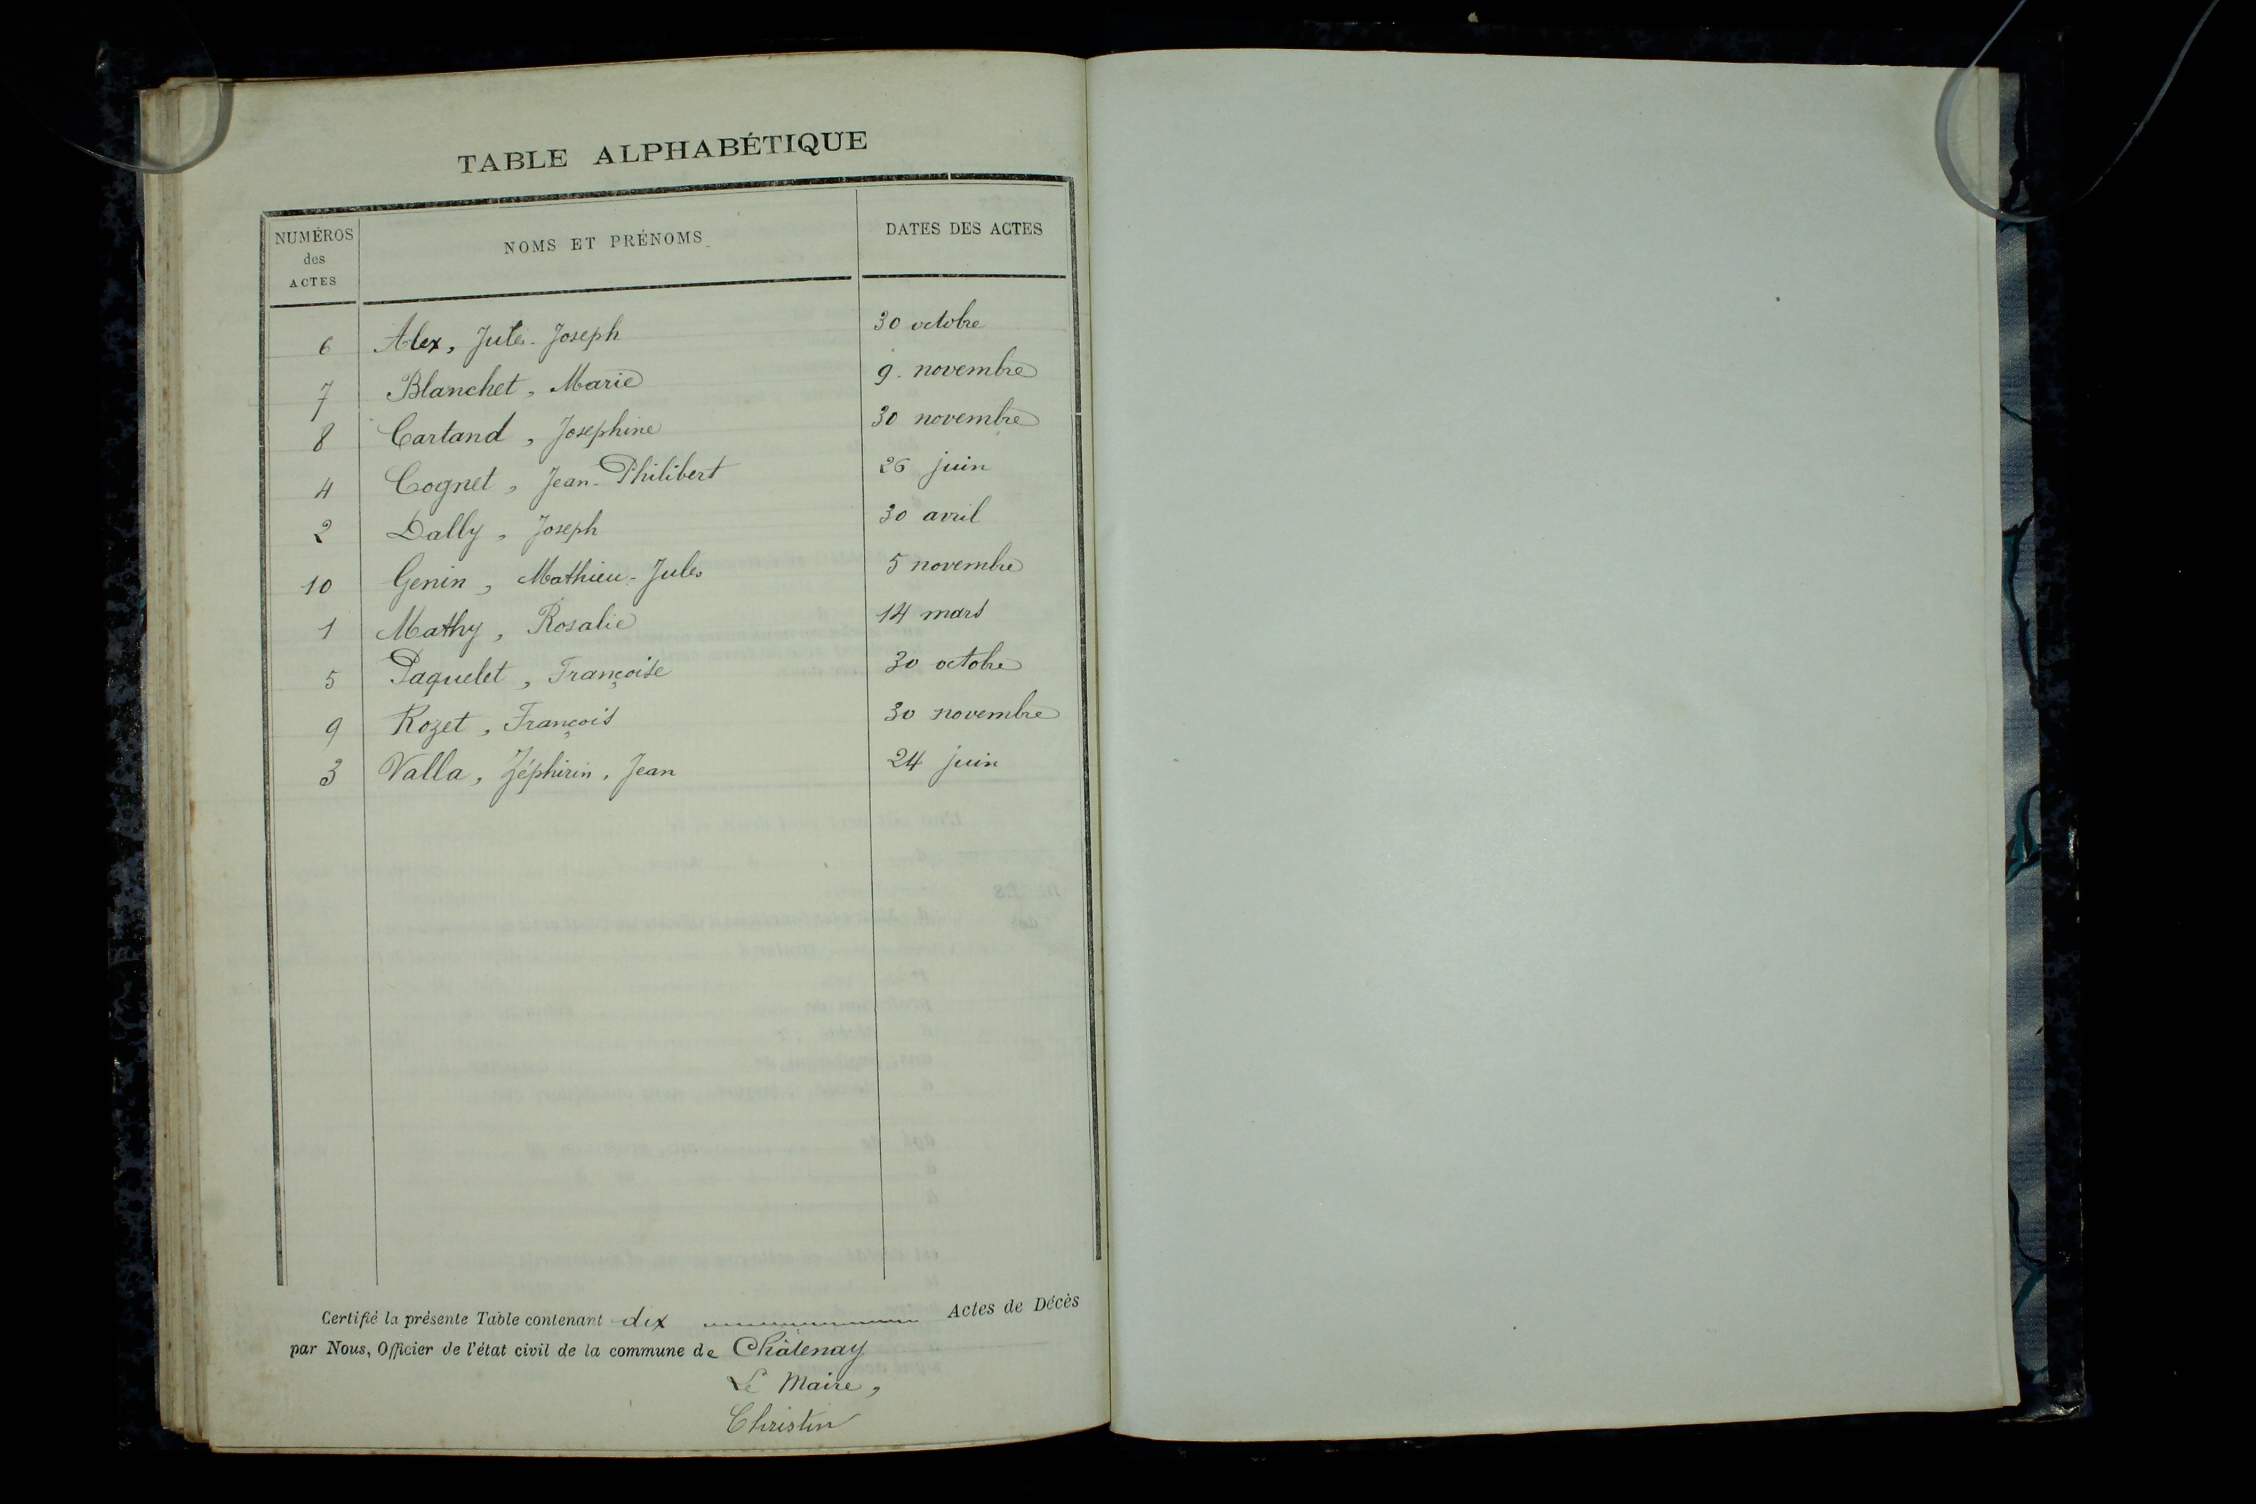 TABLE ALPHABÉTIQUE
NUMÉROS des ACTES NOMS ET PRÉNOMS DATES DES ACTES
6 Alex, Jules-Joseph 30 octobre
7 Blanchet, Marie 9 novembre
8 Cartand, Josephine 30 novembre
4 Cognet, Jean-Philibert 26 juin
2 Dally, Joseph 30 avril
10 Genin, Mathieu-Jules 5 novembre
1 Mathy, Rosalie 14 mars
5 Paquelet, Françoise 30 octobre
9 Rozet, François 30 novembre
3 Valla, Zéphirin, Jean 24 juin
Certifié la présente Table contenant dix Actes de Décès
par Nous, Officier de l'état civil de la commune de Châtenay
Le Maire,
Christin